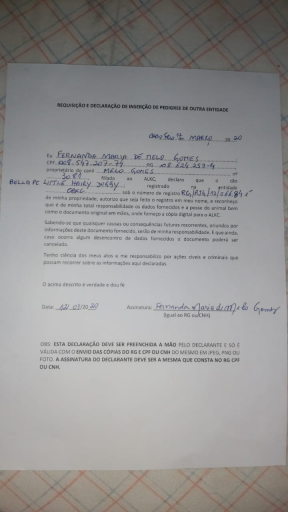 REQUISIÇÃO E DECLARAÇÃO DE INSERÇÃO DE PEDIGREE DE OUTRA ENTIDADE
de MARÇO de 20
Eu FERNANDA MARIA DE MELO GOMES
CPF 008.547.207-79 RG 08 624 253-4
proprietário do canil MELO GOMES nº
3081 filiado ao ALKC, declaro que o cão
BELLA PE LITTLE HAIRY registrado na entidade
CBKC sob o número de registro
de minha propriedade, autorizo que seja feito o registro em meu nome, e reconheço
que é de minha total responsabilidade os dados fornecidos e a posse do animal bem
como o documento original em mãos, onde forneço a cópia digital para a ALKC.
Sabendo-se que quaisquer causas ou consequências futuras recorrentes, oriundas por
informações deste documento fornecido, serão de minha responsabilidade. E que ainda,
caso ocorra algum desencontro de dados fornecidos o documento poderá ser
cancelado.
Tenho ciência dos meus atos e me responsabilizo por ações cíveis e criminais que
possam recorrer sobre as informações aqui declaradas.
O acima descrito é verdade e dou fé.
Data: Assinatura: Fernanda Maria de Melo Gomes
(Igual ao RG ou CNH)
OBS: ESTA DECLARAÇÃO DEVE SER PREENCHIDA A MÃO PELO DECLARANTE E SÓ É
VÁLIDA COM O ENVIO DAS CÓPIAS DO RG E CPF OU CNH DO MESMO EM JPEG, PNG OU
FOTO. A ASSINATURA DO DECLARANTE DEVE SER A MESMA QUE CONSTA NO RG CPF
OU CNH.